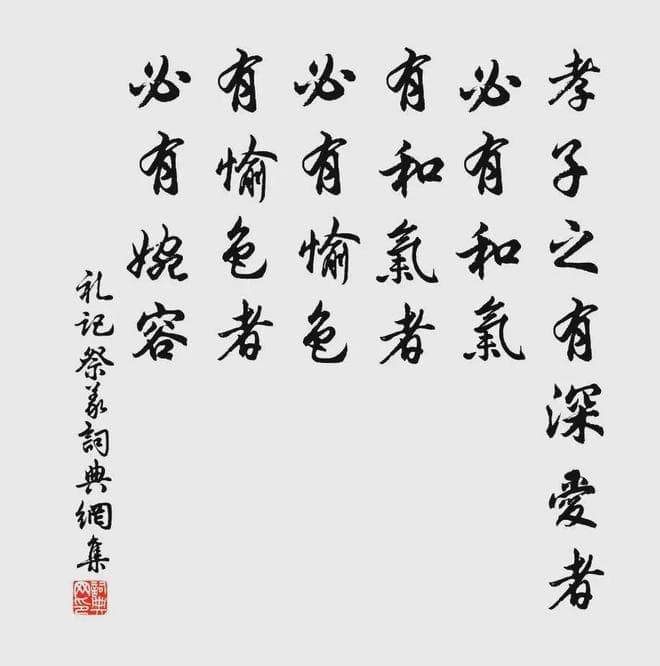 孝子之有深愛者
必有和氣
有和氣者
必有愉色
有愉色者
必有婉容
礼记祭义詞典網集